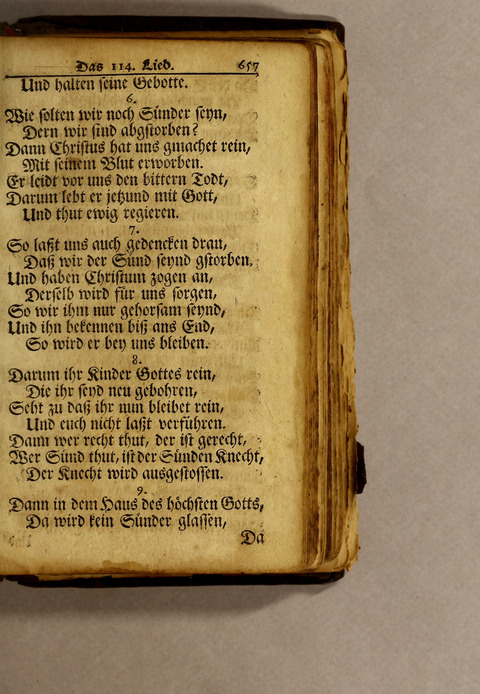 Das 114. Lied. 657
Und halten seine Gebotte.
6.
Wie solten wir noch Sünder seyn,
Dern wir sind abgstorben?
Dann Christus hat uns gmachet rein,
Mit seinem Blut erworben.
Er leidt vor uns den bittern Todt,
Darum lebt er jetzund mit Gott,
Und thut ewig regieren.
7.
So laßt uns auch gedencken dran,
Daß wir der Sünd seynd gstorben,
Und haben Christum zogen an,
Derselb wird für uns sorgen,
So wir ihm nur gehorsam seynd,
Und ihn bekennen biß ans End,
So wird er bey uns bleiben.
8.
Darum ihr Kinder Gottes rein,
Die ihr seyd neu gebohren,
Seht zu daß ihr nun bleibet rein,
Und euch nicht laßt verführen.
Dann wer recht thut, der ist gerecht,
Wer Sünd thut, ist der Sünden Knecht,
Der Knecht wird ausgestossen.
9.
Dann in dem Haus des höchsten Gotts,
Da wird kein Sünder glassen,
Da